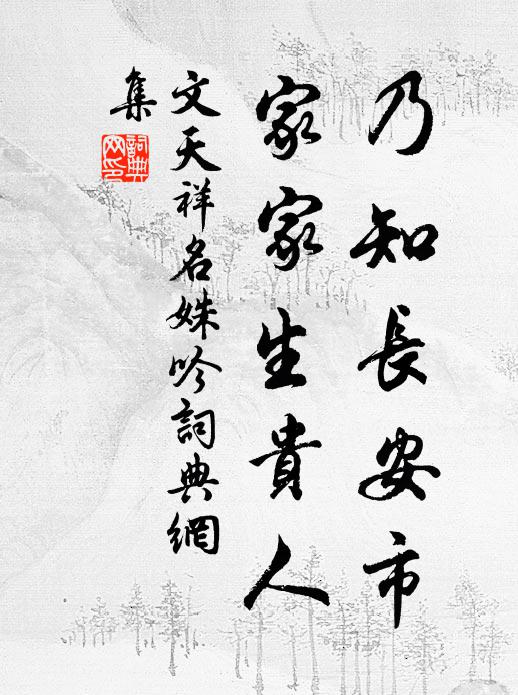 乃知長安市
家家生貴人
文天祥名姝吟詞典網
集
詞典
网印